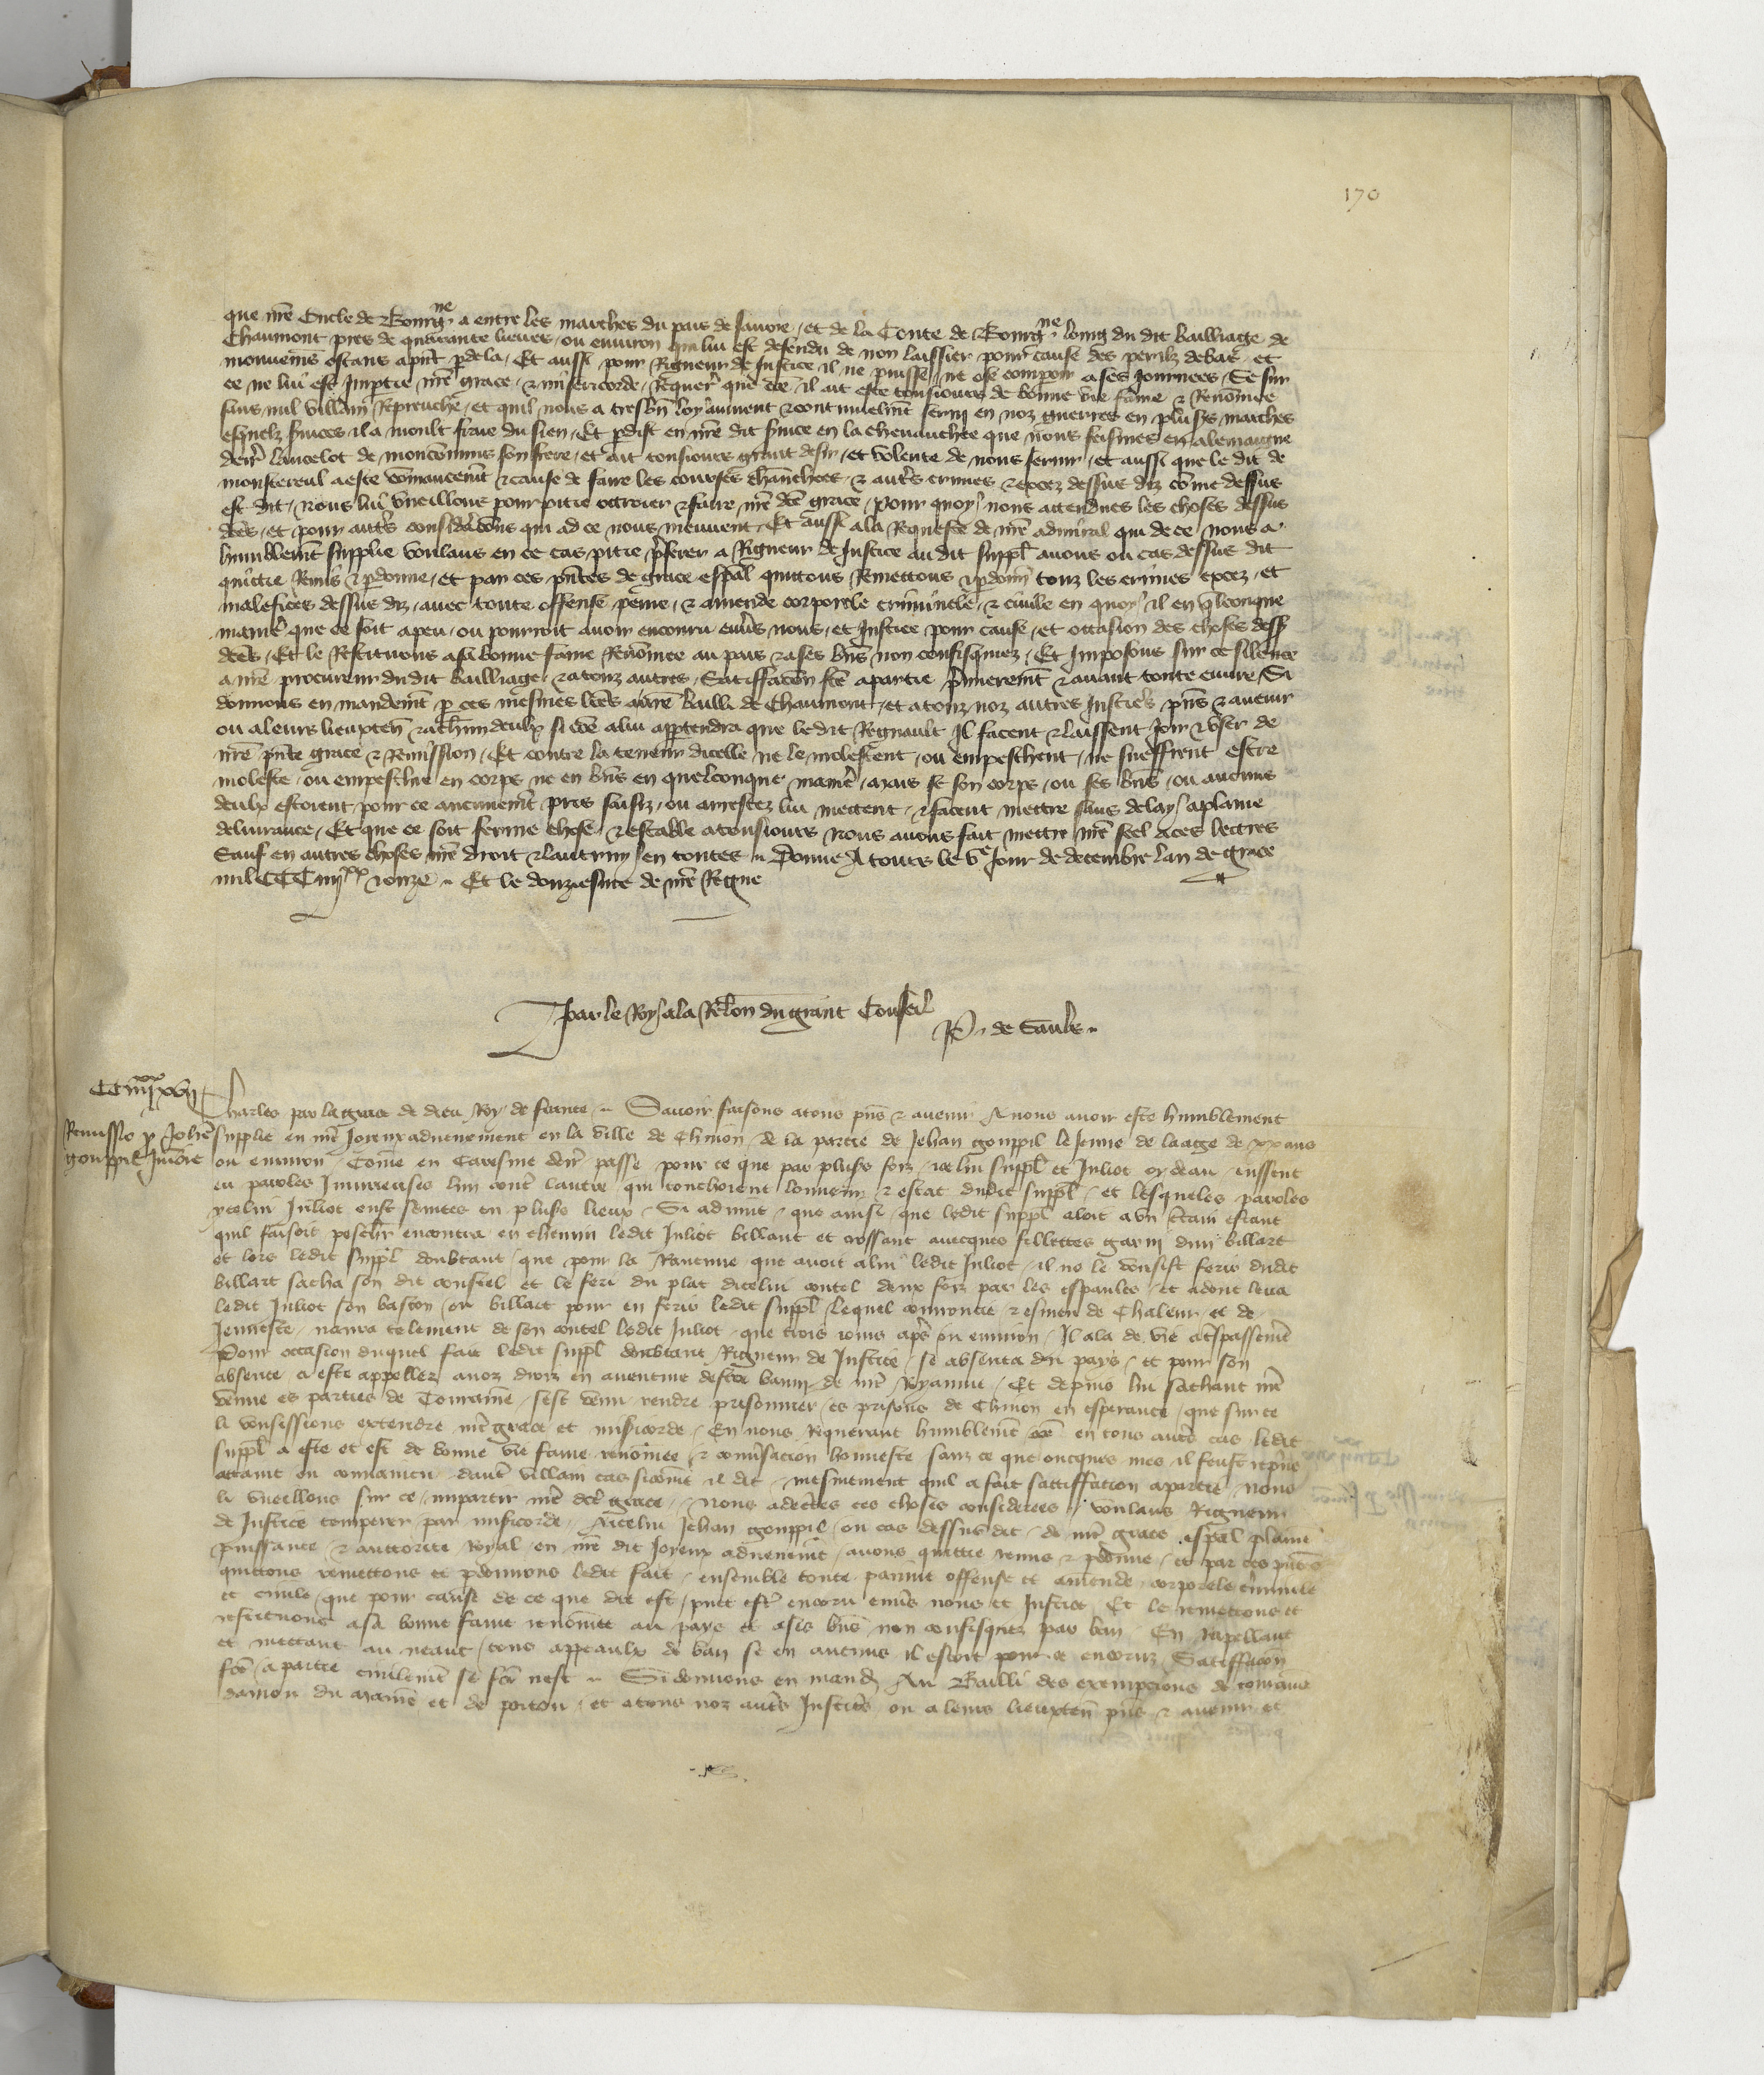 170
que nre Oncle de Bourgne a entre les marches du pais de Savoie, et de la Conte de Bourgne loing du dit bailliage de
Chaumont pres de quarante lieues, ou environ qui lui est defendu de non laissier pour cause des perilz debas et
mouvemens estans apnt p dela, Et aussi pour Rigueur de Justice il ne puisse, ne ose comparoir a ses Journees, Se sur
ce ne lui est Impartie nre grace, & misericorde, Requer que il ait este tousiours de bonne vie fame & Renomee
sans nul villain Reprouche, et quil nous a tresbn loyaument & continuelmt servy en noz guerres en plusrs marches
esquelz svices il a moult fraie du sien, Et pdist en nre dit svice en la chevauchee que nous feismes en alemaigne
derr lancelot de moncommis son frere, et ait tousiours grant desir, et volente de nous servir, et aussi que le dit de
monstereul a este commancemt & cause de faire les courses chevauchees, & autrs crimes & excez dessus diz comme dessus
est dit, nous lui vueillons pour pitie ottroier & faire nre dce grace, Pour quoy nous attendues les choses dessus
dces, et pour autrs consideracons qui ad ce nous meuvent, Et aussi a la Requeste de nre admiral qui de ce nous a
humblemt supplie voulans en ce cas pitie preferer a Rigueur de Justice au dit suppl avons ou cas dessus dit
quittie Remis & pdonne, et par ces pntes de grace espal quittons Remettons & pdonn touz les crimes excez, et
malefices dessus diz, avec toute offense peine, & amende corporele criminele, & civile en quoy il en qlconque
manie que ce soit a peu, ou pourroit avoir encouru envrs nous, et Justice pour cause, et occasion des choses dess
dces, Et le Restituons a sa bonne fame Renomee au pais & a ses bns non confisquiez, Et Imposons sur ce silence
a nre procureur du dit bailliage, & a touz autres, Satisffacon fte a partie premieremt & avant toute euvre, Si
donnons en mandemt p ces mesmes lres a nre bailli de Chaumont, et a touz noz autres Justicrs pns & avenir
ou a leurs lieuxten & a chun deulx si coe a lui appartendra que le dit Regnault Il facent & laissent Joir & user de
nre pnte grace & Remission, Et contre la teneur dicelle ne le molestent, ou empeschent, ne sueffrent estre
moleste, ou empeschie en corps ne en bns en quelconque manie, mais se son corps, ou ses bns, ou aucuns
deulx estoient pour ce aucunemt pris saisiz, ou arrestez lui mettent, & facent mettre sans delay a plaine
delivrance, Et que ce soit ferme chose, & estable a tousiours nous avons fait mettre nre seel a ces lettres
Sauf en autres choses nre droit & lautruy en toutes. Donne A tours le ve Jour de decembre lan de grace
mil CCC iiijxx & onze. Et le douziesme de nre Regne
Par le Roy a la Relon du grant Conseil
P. de Saulx.
CCiiijxxxvij
Charles par la grace de dieu Roy de france. Savoir faisons a tous pns & avenir A nous avoir este humblement
Remissio p Johe
gouppil Juvene
supplie en nre Joyeux advenement en la ville de Chinon, de la partie de Jehan gouppil le Jenne de laage de xx ans
ou environ, Comme en Caresme derr passe pour ce que par plusrs foiz, icelui suppl et Juliot oydeau, eussent
eu paroles Injurieuses lun contr lautre qui touchoient lonneur & estat dudit suppl, et lesqueles paroles
ycelui Juliot eust semees en plusrs lieux, Si advint, que ainsi que ledit suppl aloit a un estain estant
quil faisoit peschr encontra en chemin ledit Juliot billant et crossant avecques fillettes garni dun billart
et lors ledit suppl doubtant, que pour la Rancune que avoit a lui ledit Juliot, il ne le voulsist ferir dudit
billart sacha son dit coustel et le feri du plat dicelui coutel deux foiz par les espaules, et adont leva
ledit Juliot son baston, ou billart pour en ferir ledit suppl, Lequel courroucie & esmeu de Chaleur, et de
Jennesse, navra telement de son coutel ledit Juliot, que trois jours aprs ou environ, Il ala de vie a trspassemt
Pour occasion duquel fait ledit suppl doubtant Rigueur de Justice, se absenta du pays, et pour son
absence a este appellez a noz droiz en aventure destre banny de nre Royaume, Et depuis lui sachant nre
venue es parties de Touraine, sest venu rendre prisonnier, es prisons de Chinon en esperance, que sur ce
li voulsissions extendre nre grace et misicorde, En nous Requerant humblemt coe en tous autrs cas ledit
suppl a este et est de bonne vie fame renomee, & convrsacion honneste sanz ce que oncques mes il feust reprins
attaint ou convaincu dautr villain cas sicomme il dit, mesmement quil a fait satisffation a partie, nous
li vueillons sur ce impartir nre dce grace, Nous adecertes ces choses considerees, voulans Rigueur
de Justice temperer par misicorde, A icelui Jehan gouppil, ou cas dessus dit, de nre grace espal plaine
puissance & auctorite Royal en nre dit Joyeux advenemt, avons quittie remis & pdonne, et par ces pntes
quittons remettons et pdonnons ledit fait, ensemble toute painne offense et amende, corporele criminele
et civile, que pour cause de ce que dit est, puet estr encoru envrs nous et Justice, Et le remettons et
restituons a sa bonne fame renomee au pays et a ses bns non confisquez par ban, En Rapellant
et mettant au neant, tous appeaulx de ban se en aucuns il estoit pour ce encoruz, Satisffacon
fce a partie civilemt se fce nest. Si donnons en mand Au Bailli des exempcions de touraine
danjou du maine et de poitou, et a tous noz autrs Justicrs ou a leurs lieuxten pns & avenir et